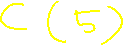 C (5)